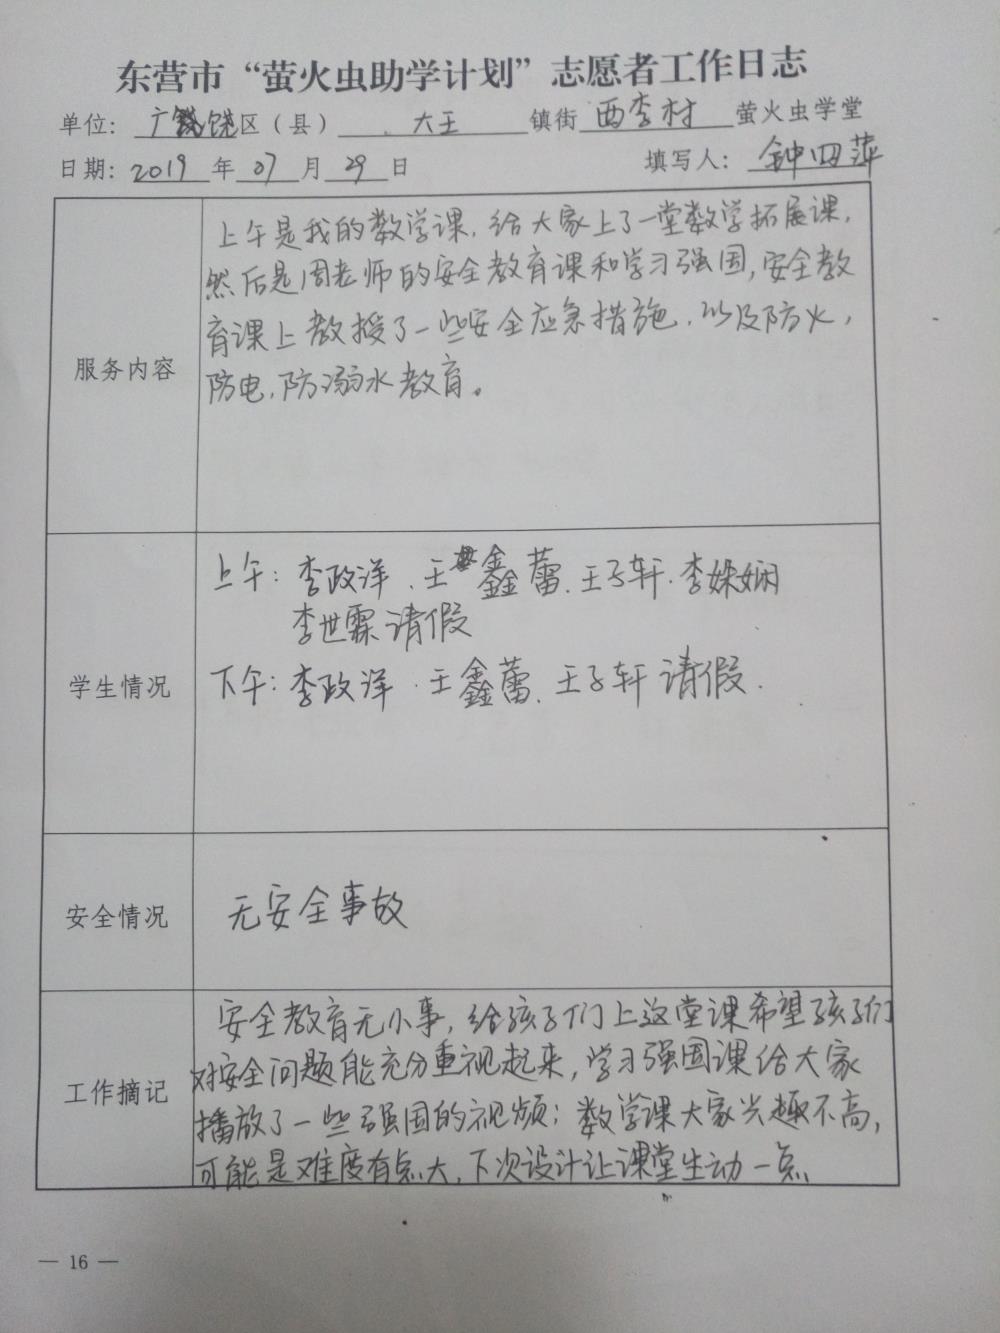 东营市“萤火虫助学计划”志愿者工作日志
单位：广饶区（县）大王镇街西李村萤火虫学堂
日期：2019年07月29日 填写人：钟四萍
服务内容
上午是我的数学课，给大家上了一堂数学拓展课，
然后是周老师的安全教育课和学习强国，安全教
育课上教授了一些安全应急措施，以及防火，
防电，防溺水教育。
学生情况
上午：李政洋．王鑫蕾．王子轩．李姝娴
李世霖请假
下午：李政洋．王鑫蕾．王子轩请假．
安全情况
无安全事故
工作摘记
安全教育无小事，给孩子们上这堂课希望孩子们
对安全问题能充分重视起来，学习强国课给大家
播放了一些强国的视频；数学课大家兴趣不高，
可能是难度有点大，下次设计让课堂生动一点
— 16 —